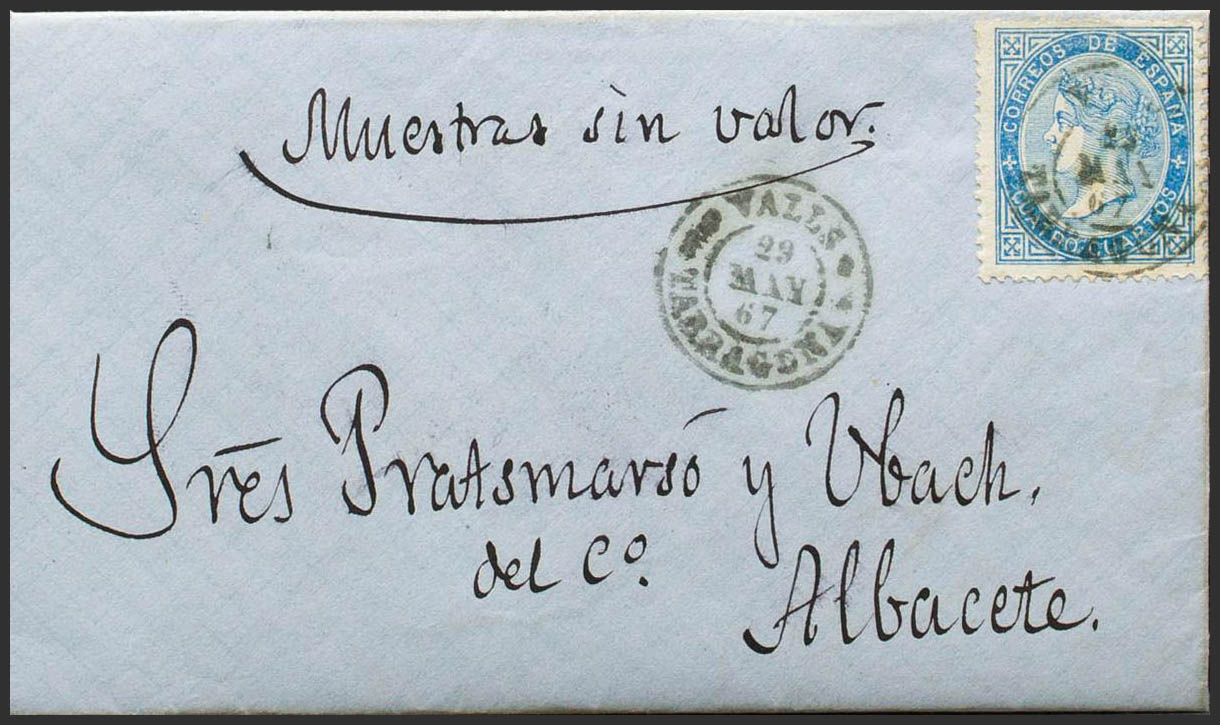 Muestras sin valor.
CORREOS DE ESPAÑA
CUATRO CUARTOS
VALLS
29
MAY
67
TARRAGONA
Sres Pratsmarsó y Ubach.
del Cº.
Albacete.